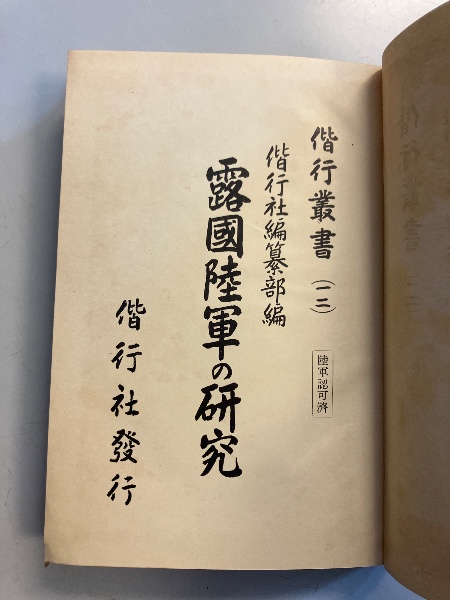 偕行叢書（一二）
陸軍認可濟
偕行社編纂部編
露國陸軍の研究
偕行社發行